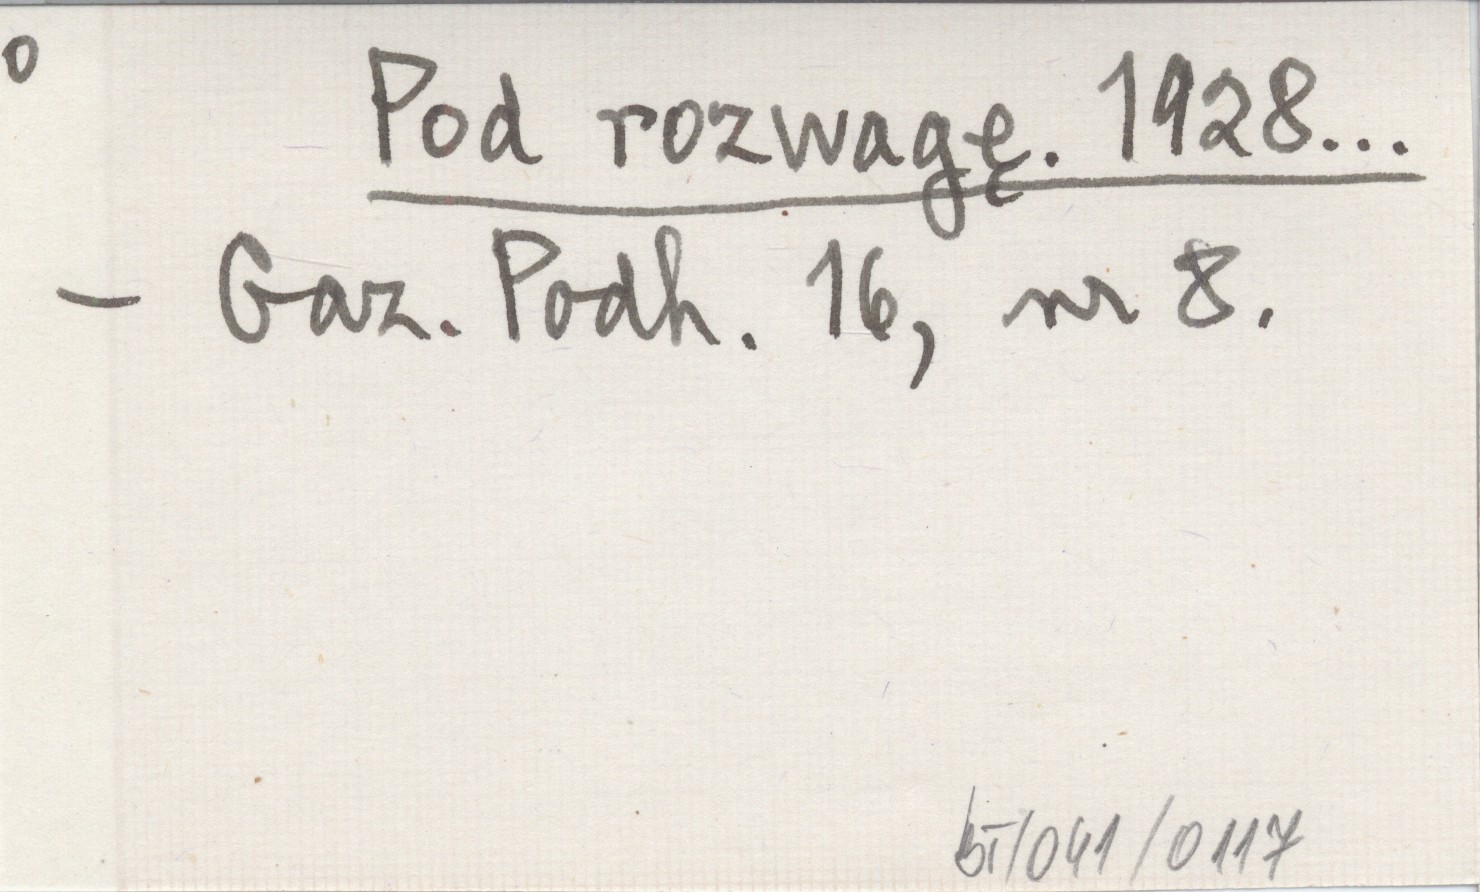 0
Pod rozwagę. 1928...
– Gaz. Podh. 16, nr 8.
/041/0117